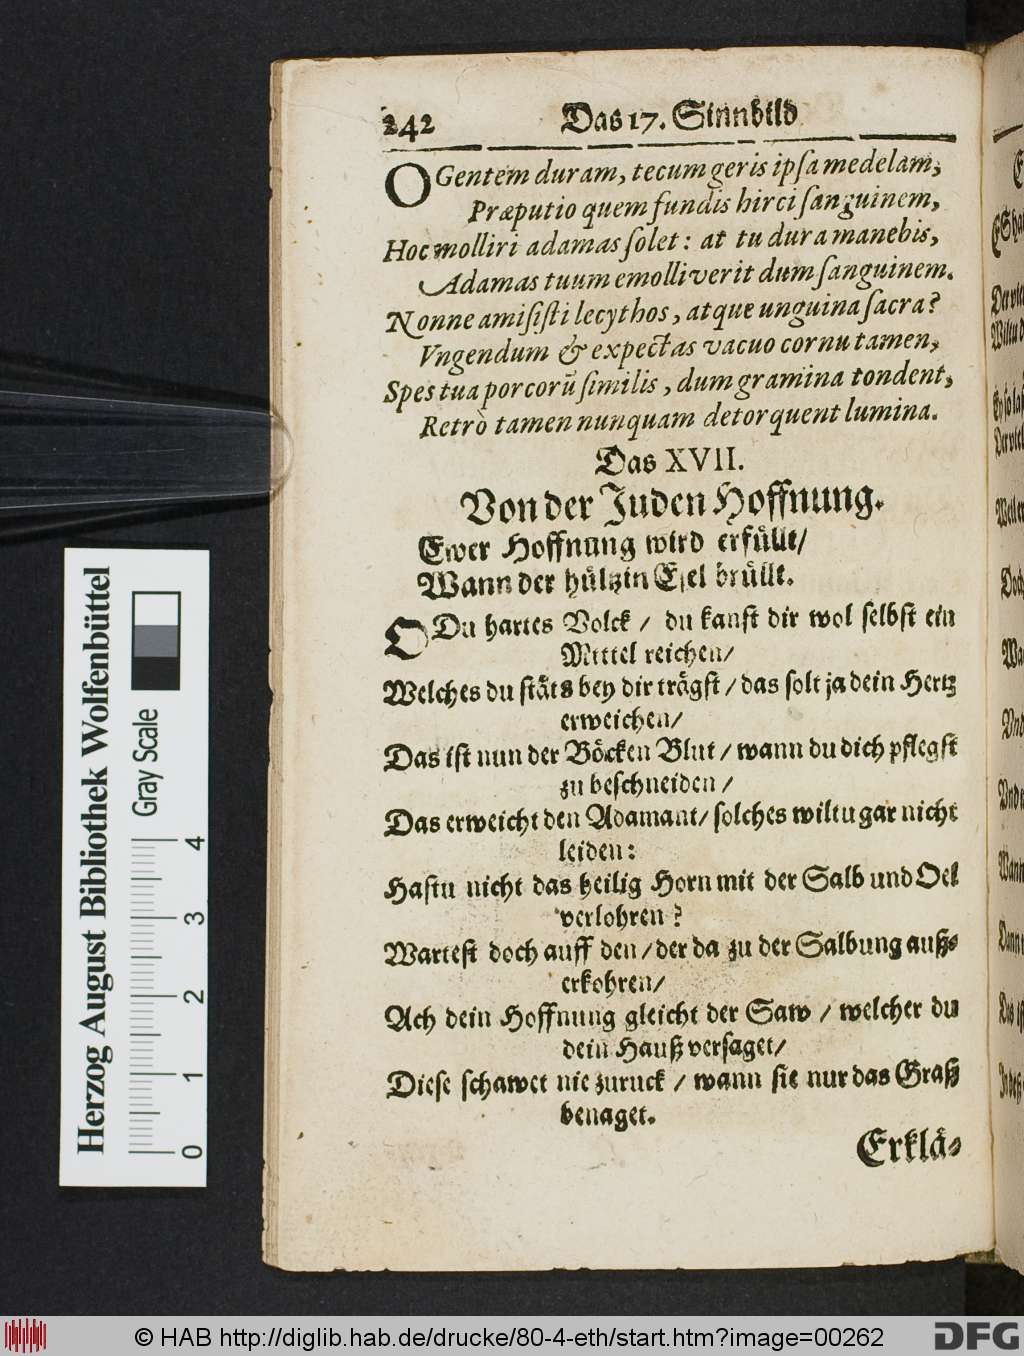 242 Das 17. Sinnbild
O Gentem duram, tecum geris ipsa medelam,
Præputio quem fundis hirci sanguinem,
Hoc molliri adamas solet: at tu dura manebis,
Adamas tuum emolliverit dum sanguinem.
Nonne amisisti lecythos, atque unguina sacra?
Vngendum & expectas vacuo cornu tamen,
Spes tua porcorũ similis, dum gramina tondent,
Retrò tamen nunquam detorquent lumina.
Das XVII.
Von der Juden Hoffnung.
Ewer Hoffnung wird erfüllt/
Wann der hültzin Esel brüllt.
O Du hartes Volck / du kanst dir wol selbst ein
Mittel reichen/
Welches du stäts bey dir trägst / das solt ja dein Hertz
erweichen/
Das ist nun der Böcken Blut / wann du dich pflegst
zu beschneiden /
Das erweicht den Adamant/ solches wiltu gar nicht
leiden:
Hastu nicht das heilig Horn mit der Salb und Oel
verlohren?
Wartest doch auff den / der da zu der Salbung auß-
erkohren/
Ach dein Hoffnung gleicht der Saw / welcher du
dein Hauß versaget/
Diese schawet nie zuruck / wann sie nur das Graß
benaget.
Erklä-
Herzog August Bibliothek Wolfenbüttel
Gray Scale
0 1 2 3 4
© HAB http://diglib.hab.de/drucke/80-4-eth/start.htm?image=00262
DFG